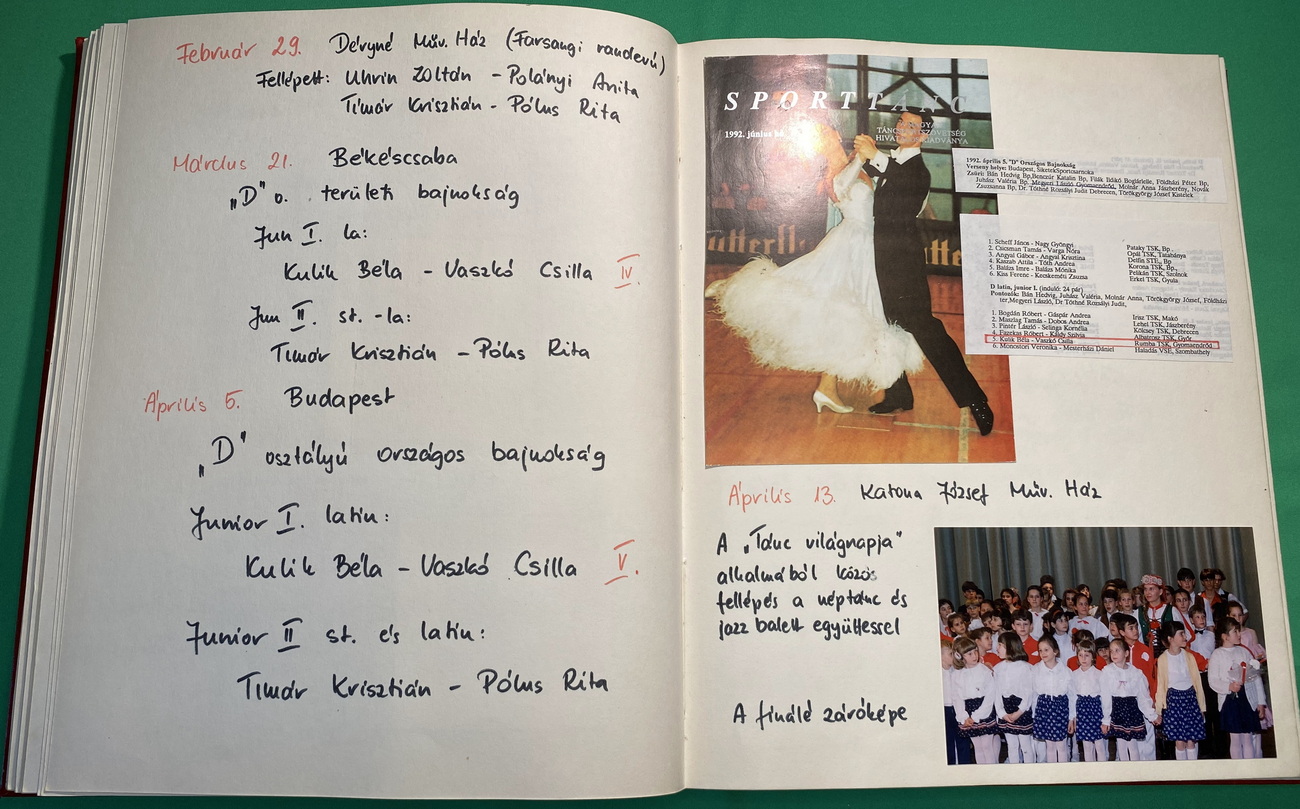 Február 29. Déryné Műv. Ház (Farsangi randevú)
Fellépett: Uhrin Zoltán - Polányi Anita
Timár Krisztián - Pólus Rita
Március 21. Békéscsaba
„D" o. területi bajnokság
Jun I. la:
Kulik Béla - Vaszkó Csilla IV.
Jun II. st. - la:
Timár Krisztián - Pólus Rita
Április 5. Budapest
„D" osztályú országos bajnokság
Junior I. latin:
Kulik Béla - Vaszkó Csilla V.
Junior II st. és latin:
Timár Krisztián - Pólus Rita
SPORTTÁNC
1992. június
TÁNCSPORTSZÖVETSÉG
HIVATALOS KIADVÁNYA
1992. április 5. "D" Országos Bajnokság
Verseny helye: Budapest, SiketekSportcsarnoka
Zsűri: Bán Hedvig Bp, Benczúr Katalin Bp, Filák Ildikó Boglárlelle, Földházi Péter Bp,
Juhász Valéria Bp, Megyeri László Gyomaendrőd, Molnár Anna Jászberény, Novák
Zsuzsanna Bp, Dr. Tóthné Rozsályi Judit Debrecen, Törökgyörgy József Kistelek
1. Scheff János - Nagy Gyöngyi Pataky TSK, Bp.
2. Csicsman Tamás - Varga Nóra Opál TSK, Tatabánya
3. Angyal Gábor - Angyal Krisztina Delfin STE., Bp
4. Kaszab Attila - Tóth Andrea Korona TSK, Bp.
5. Balázs Imre - Balázs Mónika Pelikán TSK, Szolnok
6. Kiss Ferenc - Kecskeméti Zsuzsa Erkel TSK, Gyula
D latin, junior I. (induló: 24 pár)
Pontozók: Bán Hedvig, Juhász Valéria, Molnár Anna, Törökgyörgy József, Földházi
ter, Megyeri László, Dr Tóthné Rozsályi Judit,
1. Bogdán Róbert - Gáspár Andrea Irisz TSK, Makó
2. Maszlag Tamás - Dobos Andrea Lehel TSK, Jászberény
3. Pintér László - Selinga Kornélia Kölcsey TSK, Debrecen
4. Fazekas Róbert - Káldy Szilvia Albatrosz TSK, Győr
5. Kulik Béla - Vaszkó Csilla Rumba TSK, Gyomaendrőd
6. Monostori Veronika - Mesterházi Dániel Haladás VSE, Szombathely
Április 13. Katona József Műv. Ház
A „Tánc világnapja"
alkalmából közös
fellépés a néptánc és
jazz balett együttessel
A finálé záróképe